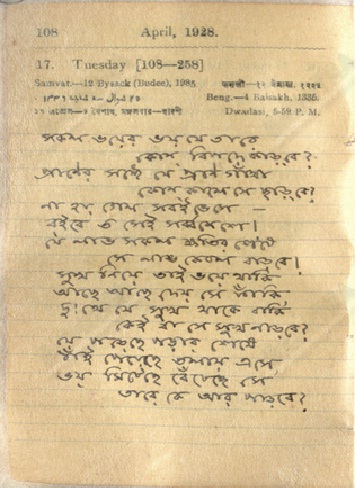 108 April, 1928.
17. Tuesday [108—258]
Samvat—12 Bysack (Budee), 1985.
Beng.—4 Baisakh, 1335.
Dwadasi, 5-59 P. M.
সকল ভয়ের ভয় যে তারে
কোন্ বিপদে কাড়বে?
প্রাণের সঙ্গে যে প্রাণ গাঁথা
কোন্ কালে সে ছাড়বে?
না হয় গেল সবই ভেসে —
রইবে ত সেই সর্ব্বনেশে।
যে লাভ সকল ক্ষতির শেষে
সে লাভ কেবল বাড়বে।
সুখ নিয়ে ভাই ভয়ে থাকি
আছে আছে দেয় সে ফাঁকি
দুঃখে যে সুখ থাকে বাকি
কেই বা সে সুখ নাড়বে?
যে পড়েছে পড়ার শেষে
ঠাঁই পেয়েছে তলায় এসে
ভয় মিটেছে বেঁচেছে সে
তারে কে আর পাড়বে?